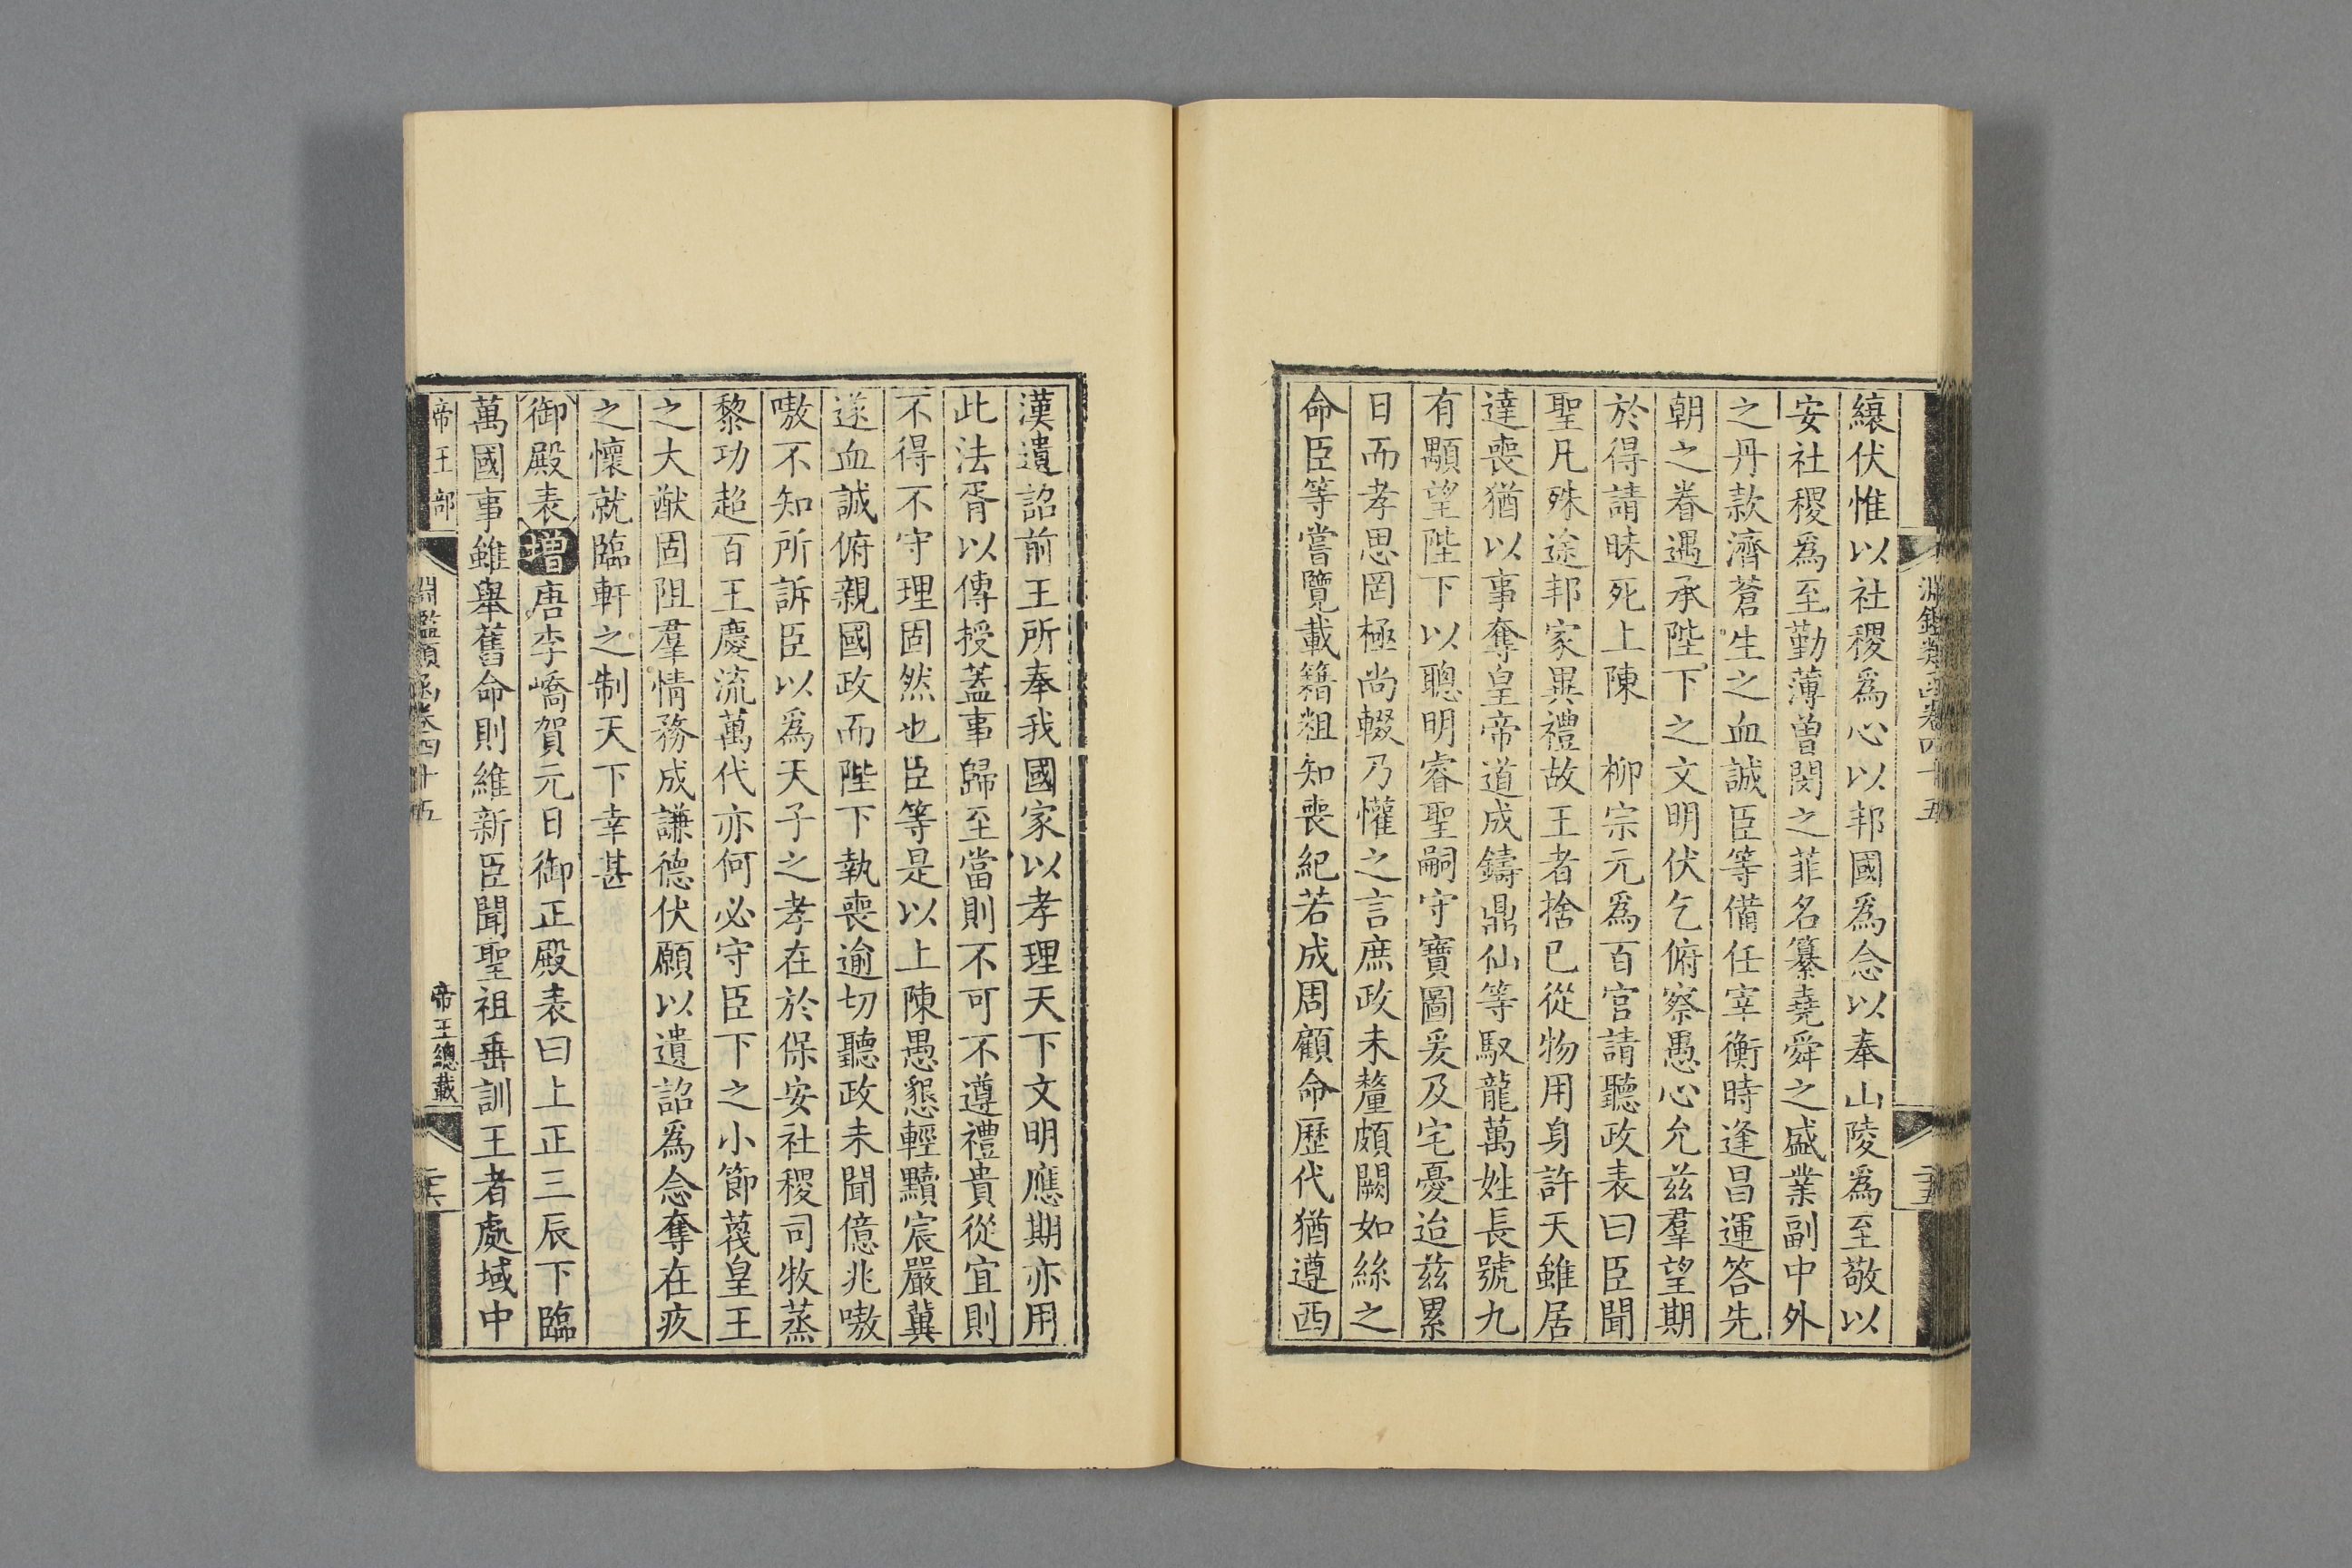 淵鑑類函卷四十五
二十五
縗伏惟以社稷爲心以邦國爲念以奉山陵爲至敬以
安社稷爲至勤薄曾閔之菲名纂堯舜之盛業副中外
之丹款濟蒼生之血誠臣等備任宰衡時逢昌運答先
朝之眷遇承陛下之文明伏乞俯察愚心允茲羣望期
於得請昧死上陳 柳宗元爲百官請聽政表曰臣聞
聖凡殊途邦家異禮故王者捨已從物用身許天雖居
達喪猶以事奪皇帝道成鑄鼎仙等馭龍萬姓長號九
有顒望陛下以聰明睿聖嗣守寶圖爰及宅憂迨茲累
日而孝思罔極尚輟乃懽之言庶政未釐頗闕如絲之
命臣等嘗覽載籍粗知喪紀若成周顧命歷代猶遵西
漢遺詔前王所奉我國家以孝理天下文明應期亦用
此法胥以傳授蓋事歸至當則不可不遵禮貴從宜則
不得不守理固然也臣等是以上陳愚懇輕黷宸嚴冀
遂血誠俯親國政而陛下執喪逾切聽政未聞億兆嗷
嗷不知所訴臣以爲天子之孝在於保安社稷司牧蒸
黎功超百王慶流萬代亦何必守臣下之小節蔑皇王
之大猷固阻羣情務成謙德伏願以遺詔爲念奪在疚
之懷就臨軒之制天下幸甚
御殿表增唐李嶠賀元日御正殿表曰上正三辰下臨
萬國事雖舉舊命則維新臣聞聖祖垂訓王者處域中
帝王部
淵鑑類函卷四十五
帝王總載
二十六